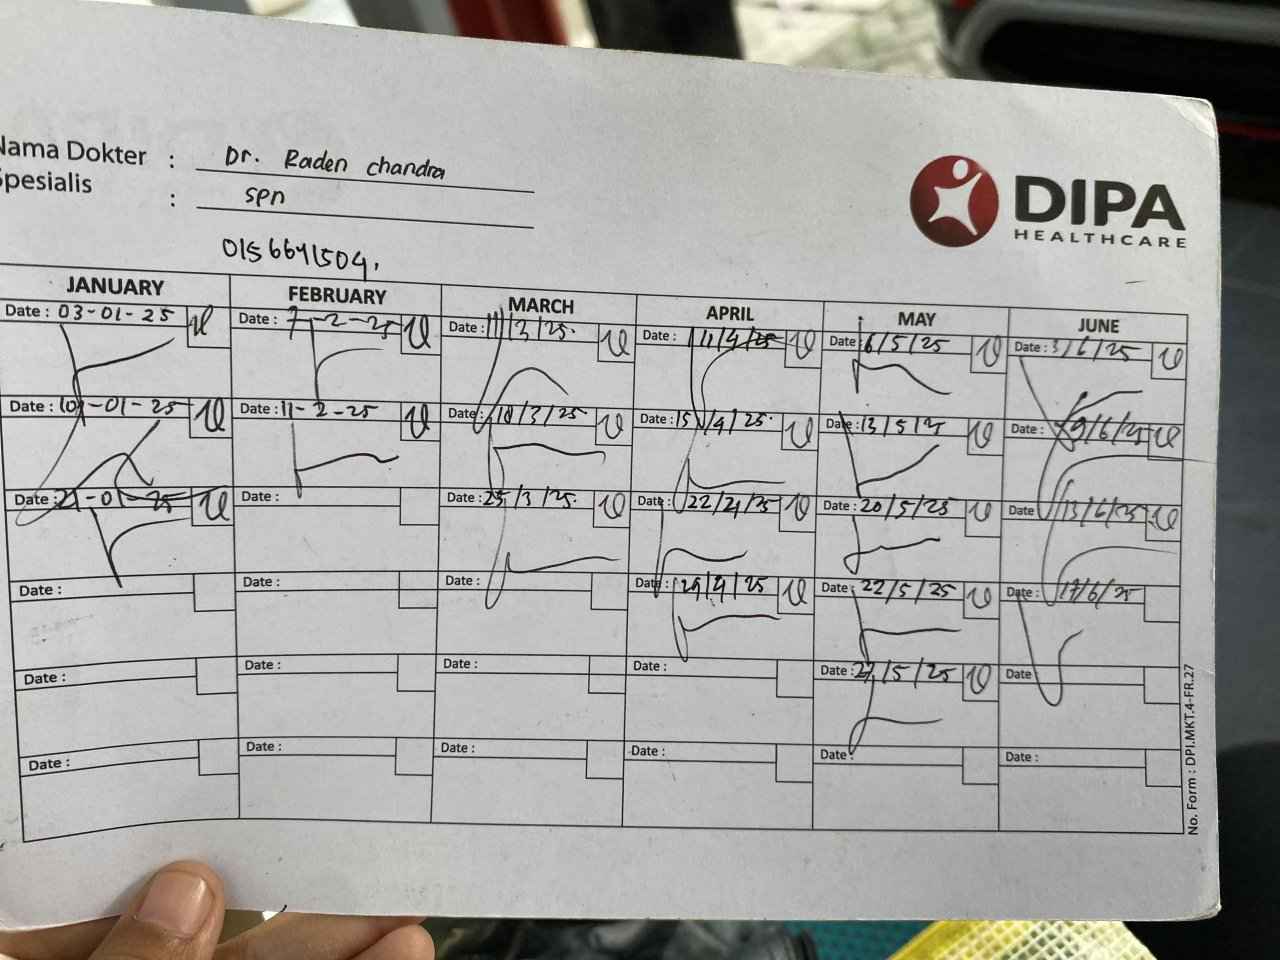 Nama Dokter : Dr. Raden Chandra
Spesialis : spn
DIPA
HEALTHCARE
JANUARY FEBRUARY MARCH APRIL MAY JUNE
Date : 03-01-25 Date : 7-2-25 Date : 11/3/25. Date : 11/4/25 Date : 6/5/25 Date : 3/6/25
Date : -01-25 Date : 11-2-25 Date : 18/3/25 Date : 15/4/25. Date : 13/5/25 Date : 9/6/25
Date : 21-01-25 Date : Date : 25/3/25. Date : 22/4/25 Date : 20/5/25 Date 13/6/25
Date : Date : Date : Date : 29/4/25 Date : 22/5/25 Date : 17/6/25
Date : Date : Date : Date : Date : 27/5/25 Date
Date : Date : Date : Date : Date : Date :
No. Form : DPI.MKT.4-FR.27